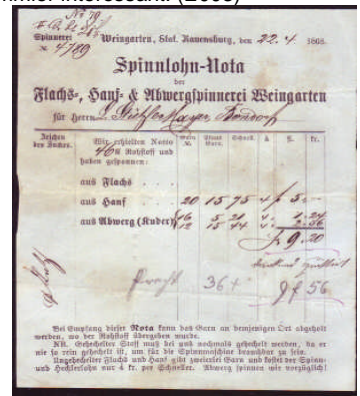 No 79
Spinnerei
№ 4789
Weingarten, Stat. Ravensburg, den 22. 4. 1868.
Spinnlohn-Nota
der
Flachs-, Hanf- & Abwergspinnerei Weingarten
für Herrn Mayer, Bondorf
Zeichen des Sackes.
Wir erhielten Netto
40 ℔ Rohstoff und
haben gesponnen:
Garn №.
Schnell.
fl.
kr.
aus Flachs . . . .
aus Hanf . . . . 20 15 75 4 f 5 —
aus Abwerg (Kuder) 16 5 21 4 1. 24
12 15 44 2. 56
f 9. 20
Fracht 36
9 f 56
Bei Empfang dieser Nota kann das Garn an demjenigen Ort abgeholt
werden, wo der Rohstoff übergeben wurde.
NB. Gehechelter Stoff muß bei uns nochmals gehechelt werden, da er
nie so rein gehechelt ist, um für die Spinnmaschine brauchbar zu sein.
Ungehechelter Flachs und Hanf gibt zweierlei Garn und kostet der Spinn-
und Hechlerlohn nur 4 kr. per Schneller. Abwerg spinnen wir vorzüglich!